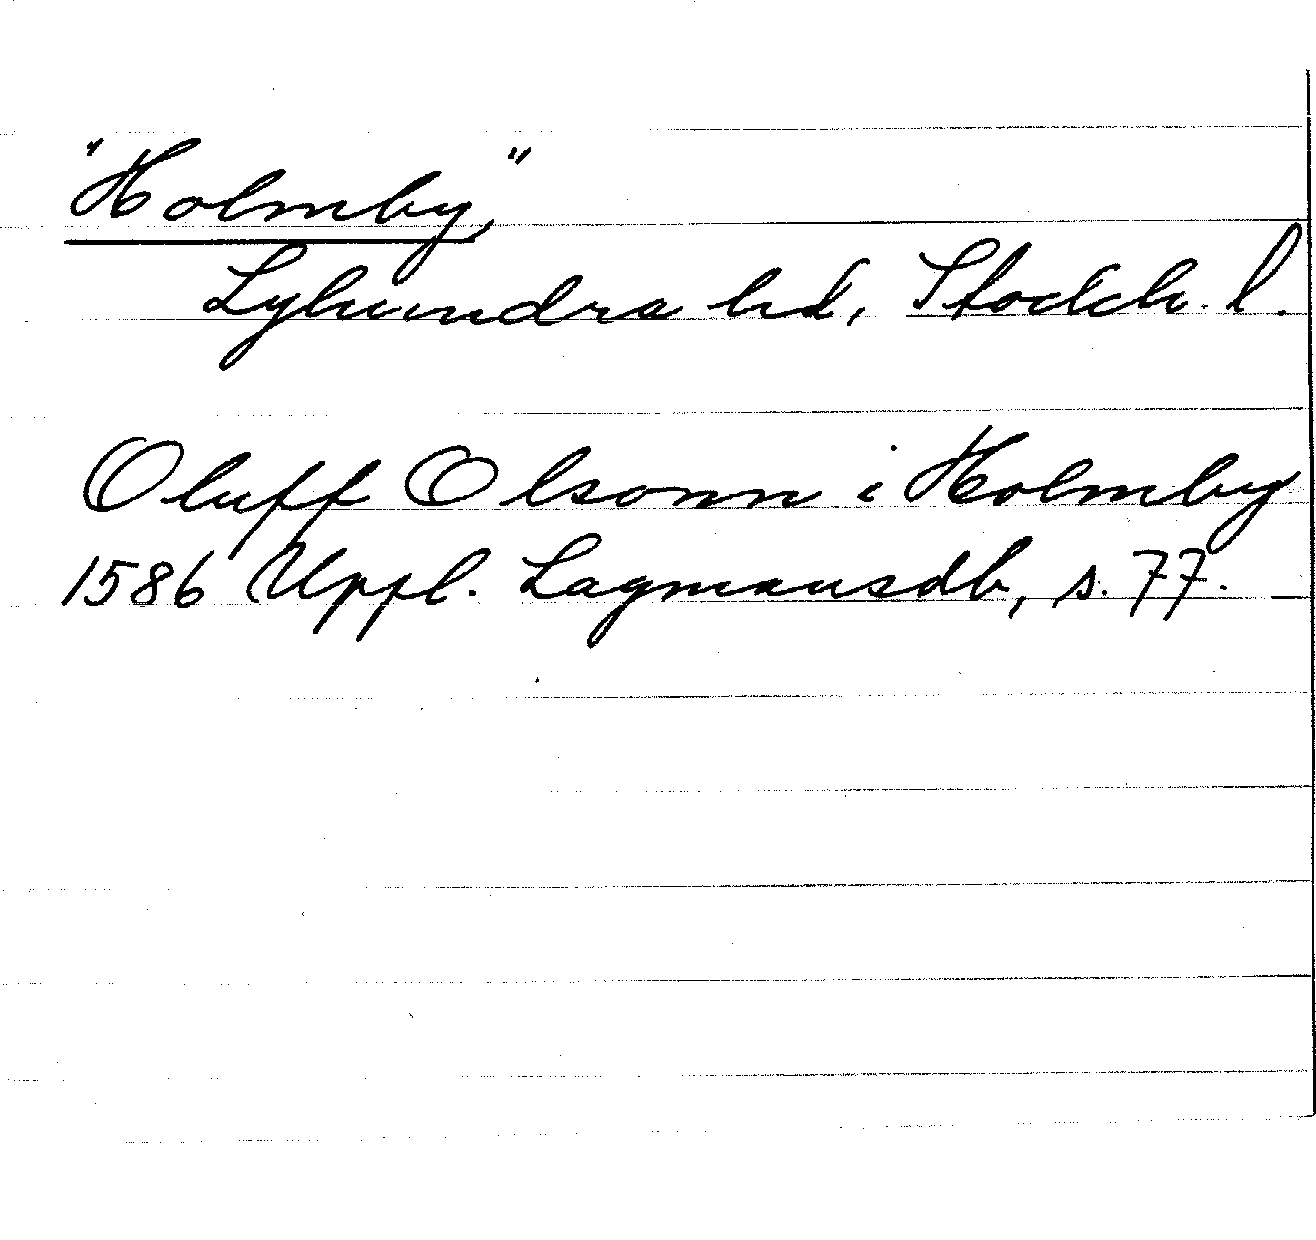 "Holmby,"
Lyhundra hd, Stockh. l.
Oluff Olsonn i Holmby
1586 Uppl. Lagmansdb, s. 77.